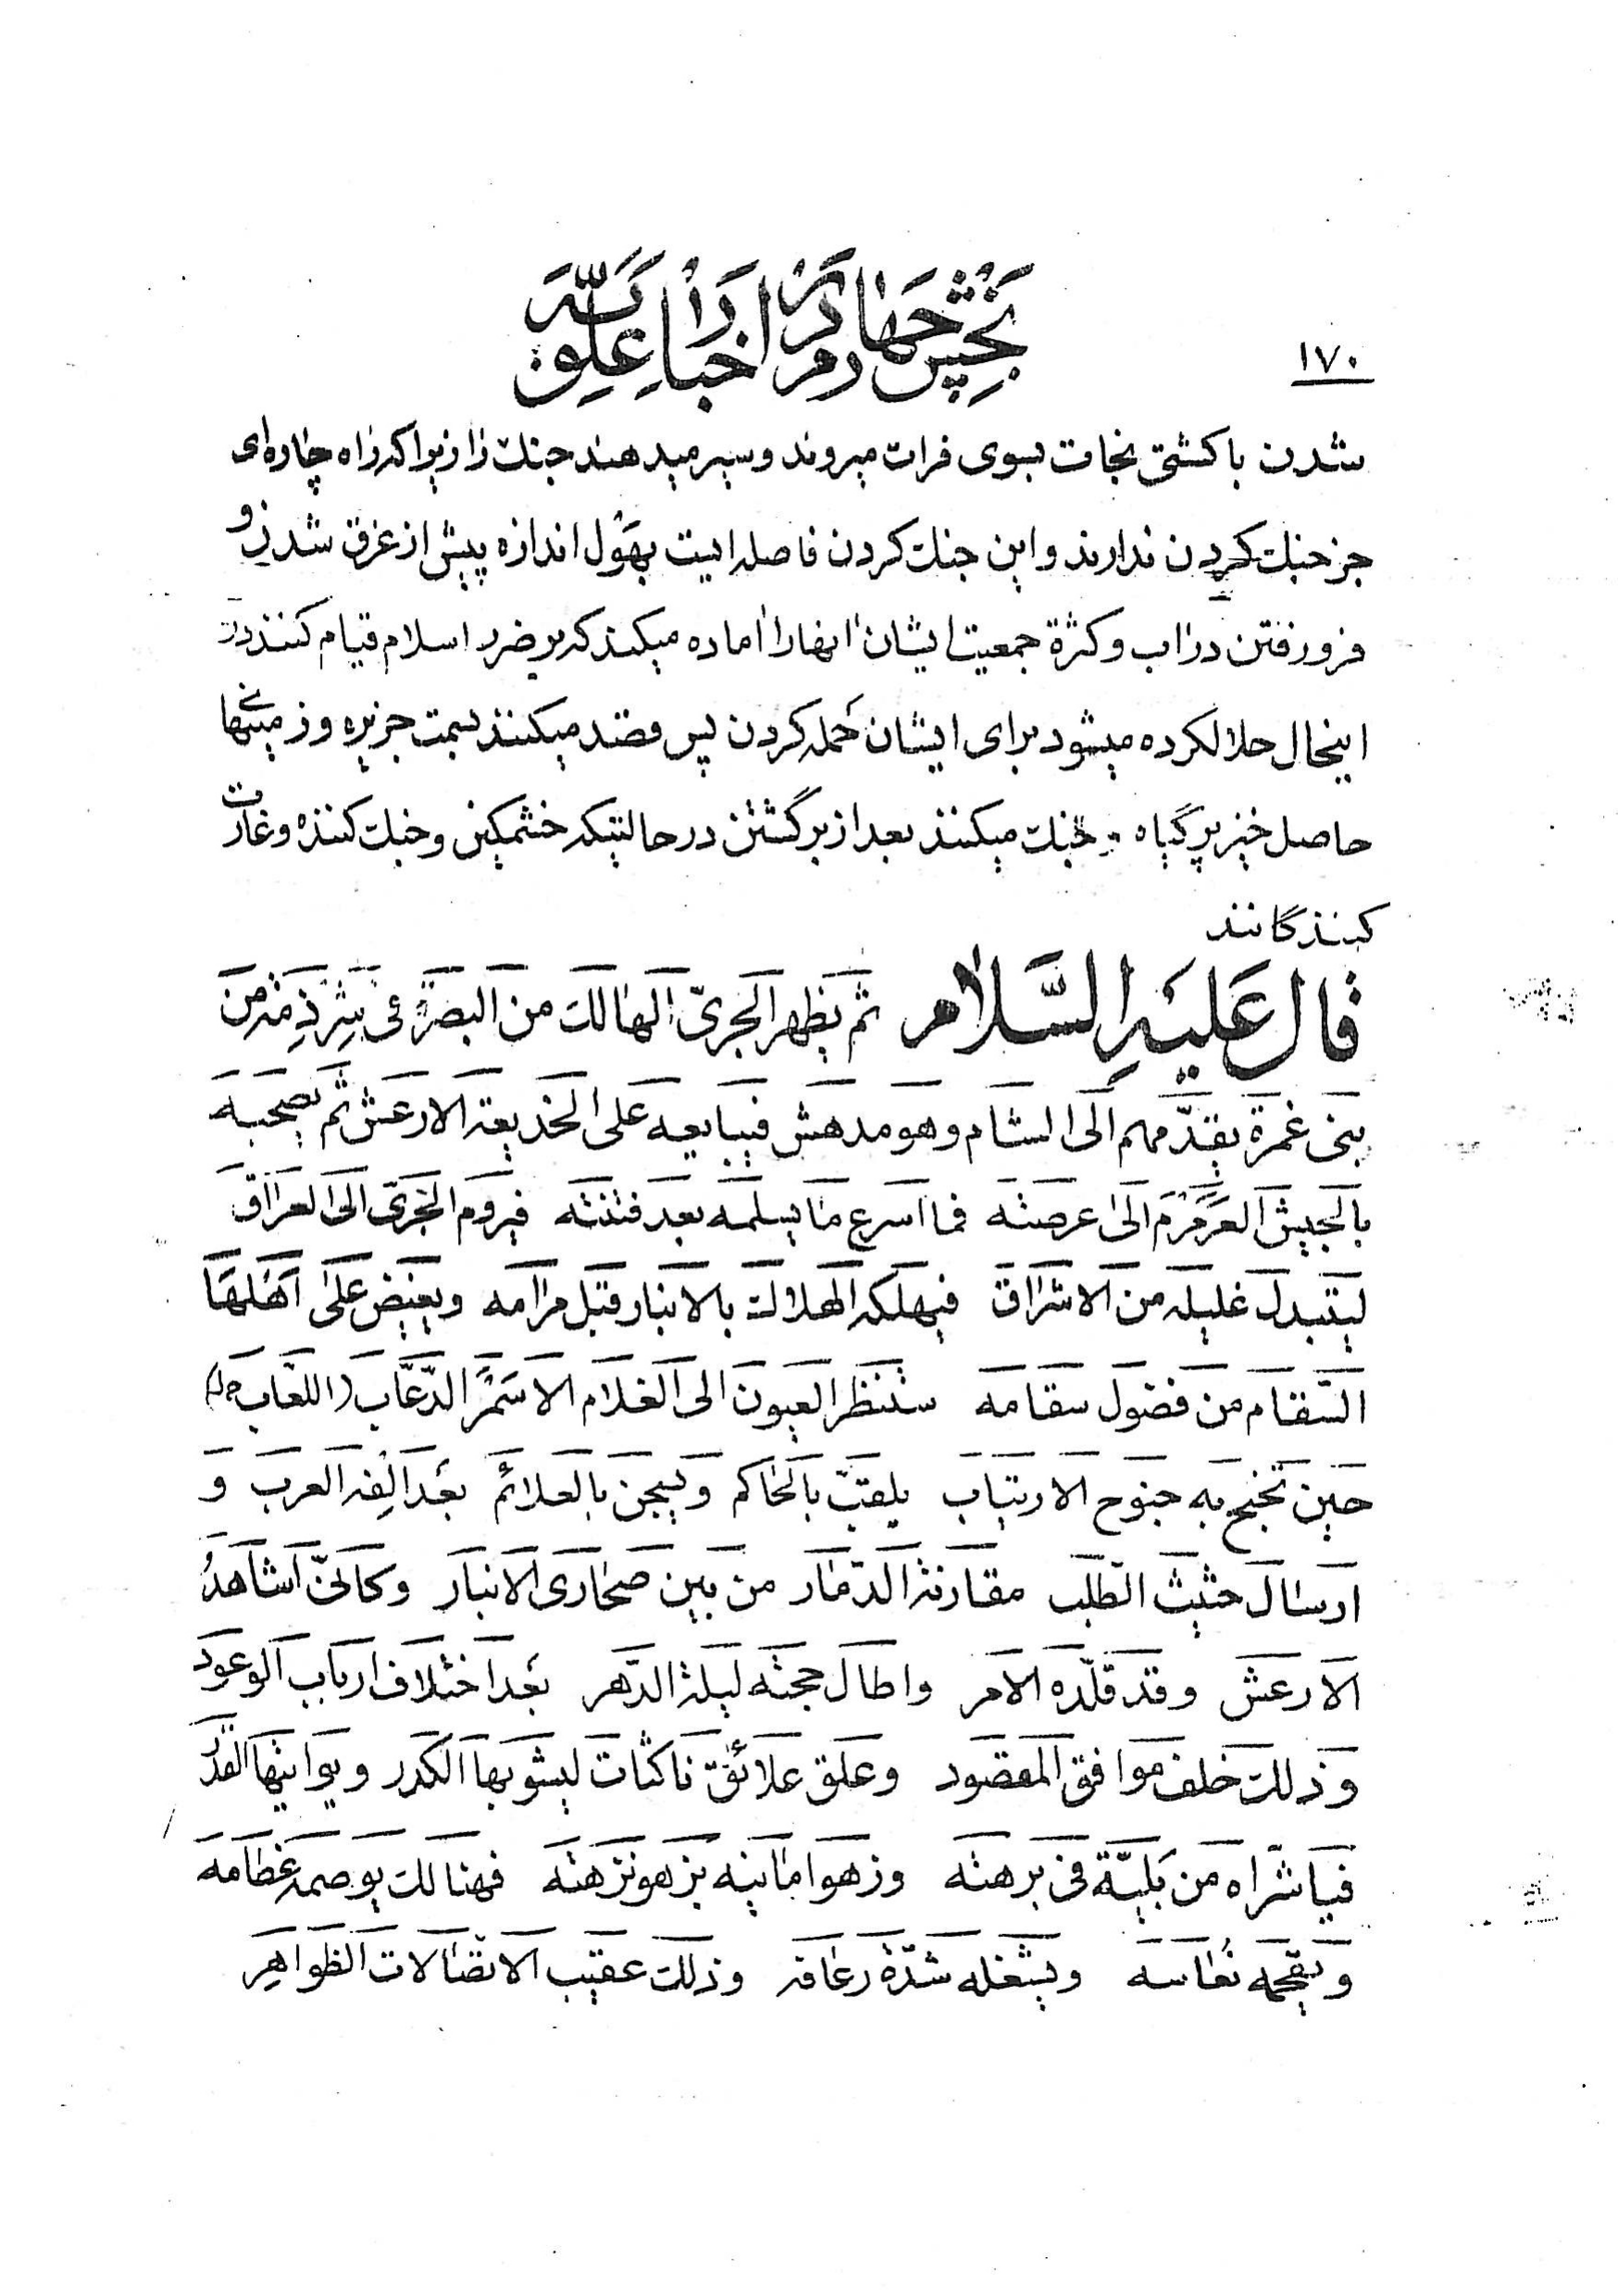 ۱۷۰
بخش چهارم در اخبار علویه
شدن باکشتی نجات بسوی فرات میروند وسیر میدهند جنك را زیرا که راه چاره‌ای
جز جنك کردن ندارند واین جنك کردن فاصله ایست بهول اندازه پیش از غرق شدن و
فرورفتن دراب وکثرة جمعیت ایشان انهارا اماده میکند که بر ضرر اسلام قیام کنند در
اینحال حلالکرده میشود برای ایشان حمله کردن پس قصد میکنند بسمت جزیره وزمینهای
حاصل خیز پرگیاه و جنك میکنند بعد از برگشتن درحالتیکه خشمگین وجنك کننده وغارت
کنندگانند
قال علیه السلام ثم یظهر الجری الهالك من البصرة فی شرذمة من
بنی غمرة یقدمهم الی الشام وهو مدهش فیبایعه علی الخدیعة الارعش ثم یصحبه
بالجیش العرمرم الی عرصته فما اسرع ما یسلمه بعد فتنته فیروم الجری الی العراق
لیتبدل غلیله من الاشراق فیهلکه الهلاك بالانبار قبل مرامه ویغیض علی اهلها
السقام من فضول سقامه ستنظر العیون الی الغلام الاسمر الدعاب (اللعاب خ‌ل)
حین تجنح به جنوح الارتیاب یلقب بالحاکم ویسجن بالعلائم بعد الفة العرب و
ارسال حثیث الطلب مقارنة الدمار من بین صحاری الانبار وکانی اشاهد
الارعش وقد قلده الامر واطال حجته لیلة الدهر بعد اختلاف ارباب الوعود
وذلك خلف موافق المقصود وعلق علائق ناکثات لیشوبها الکدر ویواتیها القدر
فیاشراه من بلیة فی برهته وزهو امانیه بزهو نزهته فهنالك یوصمه غطامه
ویقحمه نعاسه ویشغله شدة رعافه وذلك عقیب الاتصالات الظواهر